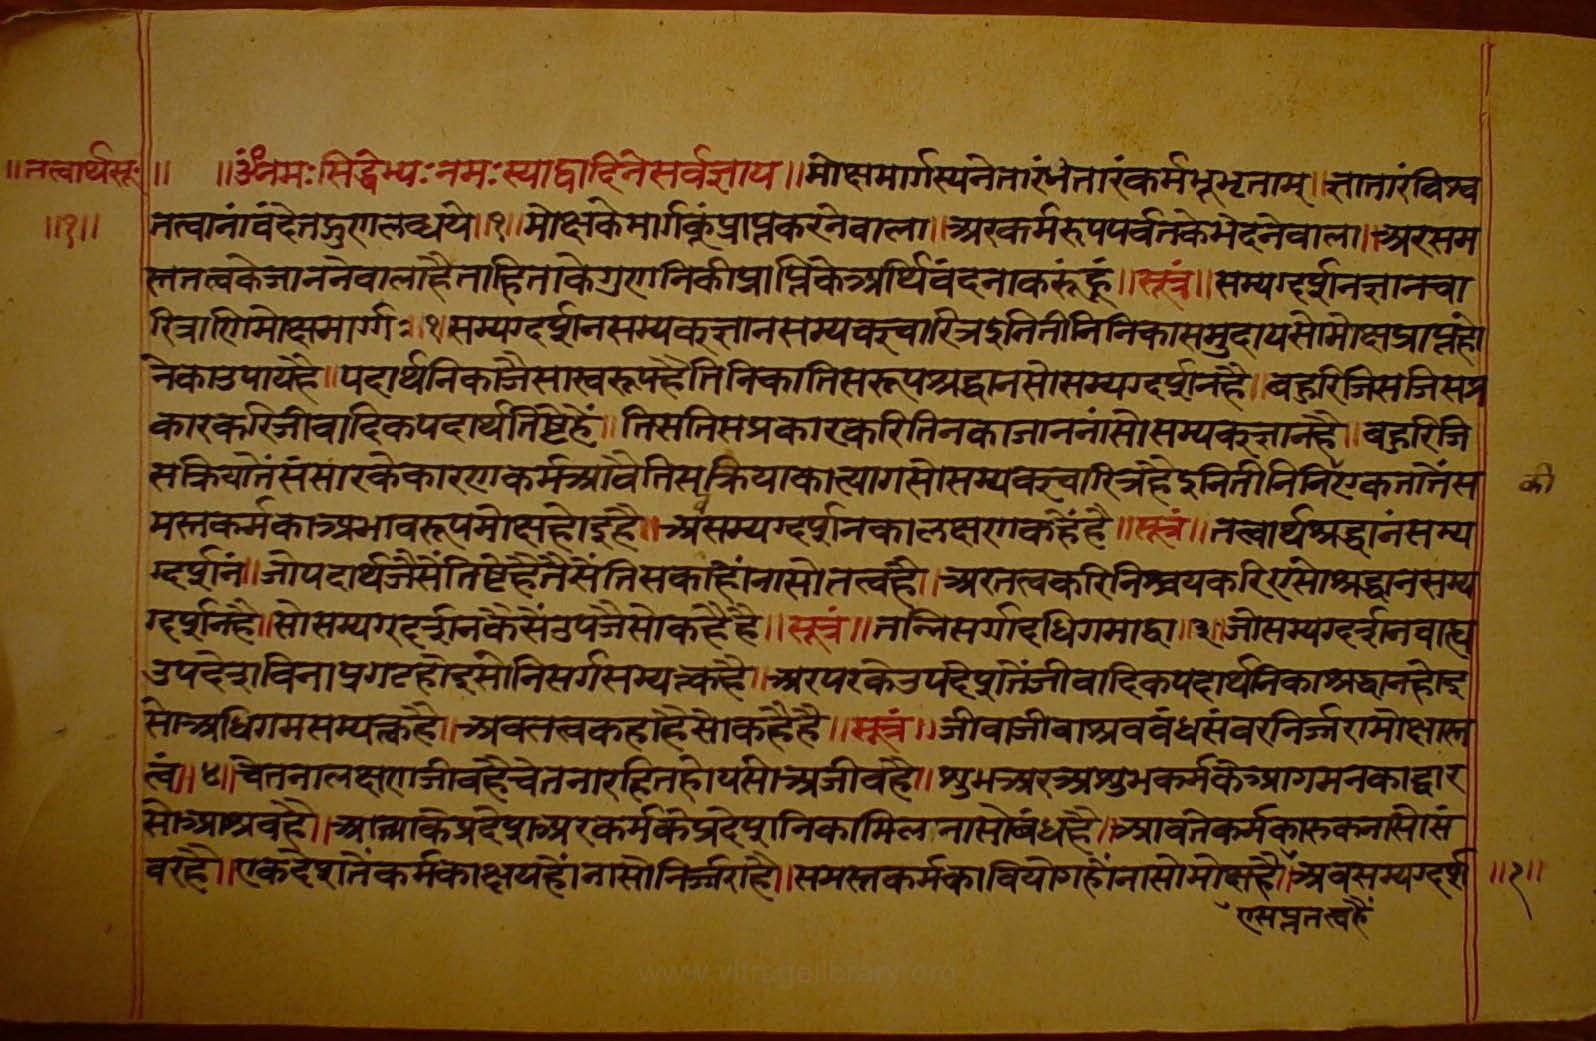 ॥तत्वार्थसूः॥ ॥ॐनमःसिद्धेभ्यःनमःस्याद्वादिनेसर्वज्ञाय॥मोक्षमार्गस्यनेतारंभेत्तारंकर्मभूभृताम्॥ज्ञातारंविश्व
॥१॥ तत्वानांवंदेतद्गुणलब्धये॥१॥मोक्षकेमार्गकूंप्राप्तकरनेवाला॥अरकर्मरूपपर्वतकेभेदनेवाला॥अरसम
स्ततत्वकेजाननेवालाहैताहिताकेगुणनिकीप्राप्तिकेअर्थिवंदनाकरूंहूं॥सूत्रं॥सम्यग्दर्शनज्ञानचा
रित्राणिमोक्षमार्ग्गः१सम्यग्दर्शनसम्यक्ज्ञानसम्यक्चारित्रइनितीनिनिकासमुदायसोमोक्षप्राप्तहो
नेकाउपायहै॥पदार्थनिकाजैसास्वरूपहैतिनिकातिसरूपश्रद्धानसोसम्यग्दर्शनहै॥बहुरिजिसजिसप्र
कारकरिजीवादिकपदार्थतिष्टेहैं॥तिसतिसप्रकारकरितिनकाजाननांसोसम्यक्ज्ञानहै॥बहुरिजि
सक्रियातैंसंसारकेकारणकर्मआवैतिसक्रियाकात्यागसोसम्यक्चारित्रहैइनितीनिनिकीएकतातैंस
मस्तकर्मकाअभावरूपमोक्षहोइहै॥अंसम्यग्दर्शनकालक्षणकहैंहै॥सूत्रं॥तत्वार्थश्रद्धानंसम्य
ग्दर्शनं॥जोपदार्थजैसेंतिष्टेहैतैसेंतिसकाहोंनासोतत्वहै॥अरतत्वकरिनिश्चयकरिएसोश्रद्धानसम्य
ग्दर्शनहै॥सोसम्यग्दर्शनकैसेंउपजैसोकहैहै॥सूत्रं॥तन्निसर्गादधिगमाद्वा॥३॥जोसम्यग्दर्शनवाह्य
उपदेशविनाप्रगटहोइसोनिसर्गसम्यक्त्वहै॥अरपरकेउपदेशतैंजीवादिकपदार्थनिकाश्रद्धानहोइ
सोअधिगमसम्यक्त्वहै॥अवतत्वकहाहैसोकहैहै॥सूत्रं॥जीवाजीवाश्रववंधसंवरनिर्ज्जरामोक्षास्त
त्वं॥४॥चेतनालक्षणजीवहैचेतनारहितहोयसोअजीवहै॥शुभअरअशुभकर्मकेआगमनकाद्वार
सोआश्रवहै॥आत्माकेप्रदेशअरकर्मकेप्रदेशनिकामिलनासोबंधहै॥आवतेकर्मकारुकनासोसं
वरहै॥एकदेशतैंकर्मकाक्षयहोंनासोनिर्ज्जराहै॥समस्तकर्मकावियोगहोंनासोमोक्षहै॥अवसम्यग्दर्श ॥१॥
एसप्ततत्वहैं
की
www.vitragelibrary.org